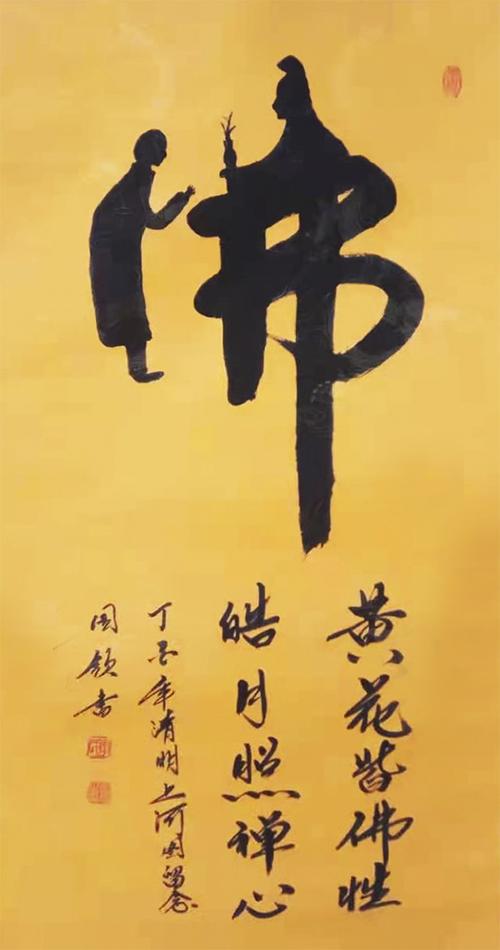 佛
黄花皆佛性
皓月照禅心
丁酉年清明上河园留念
国领书